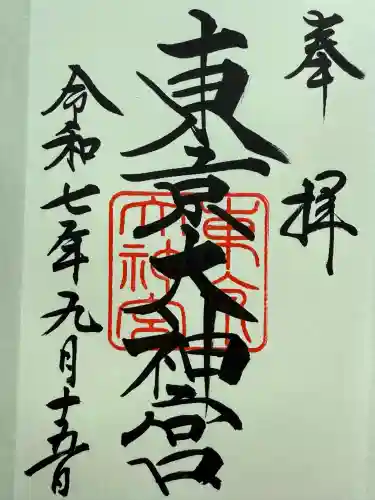 奉拝
東京大神宮
東京大神宮
令和七年九月十五日